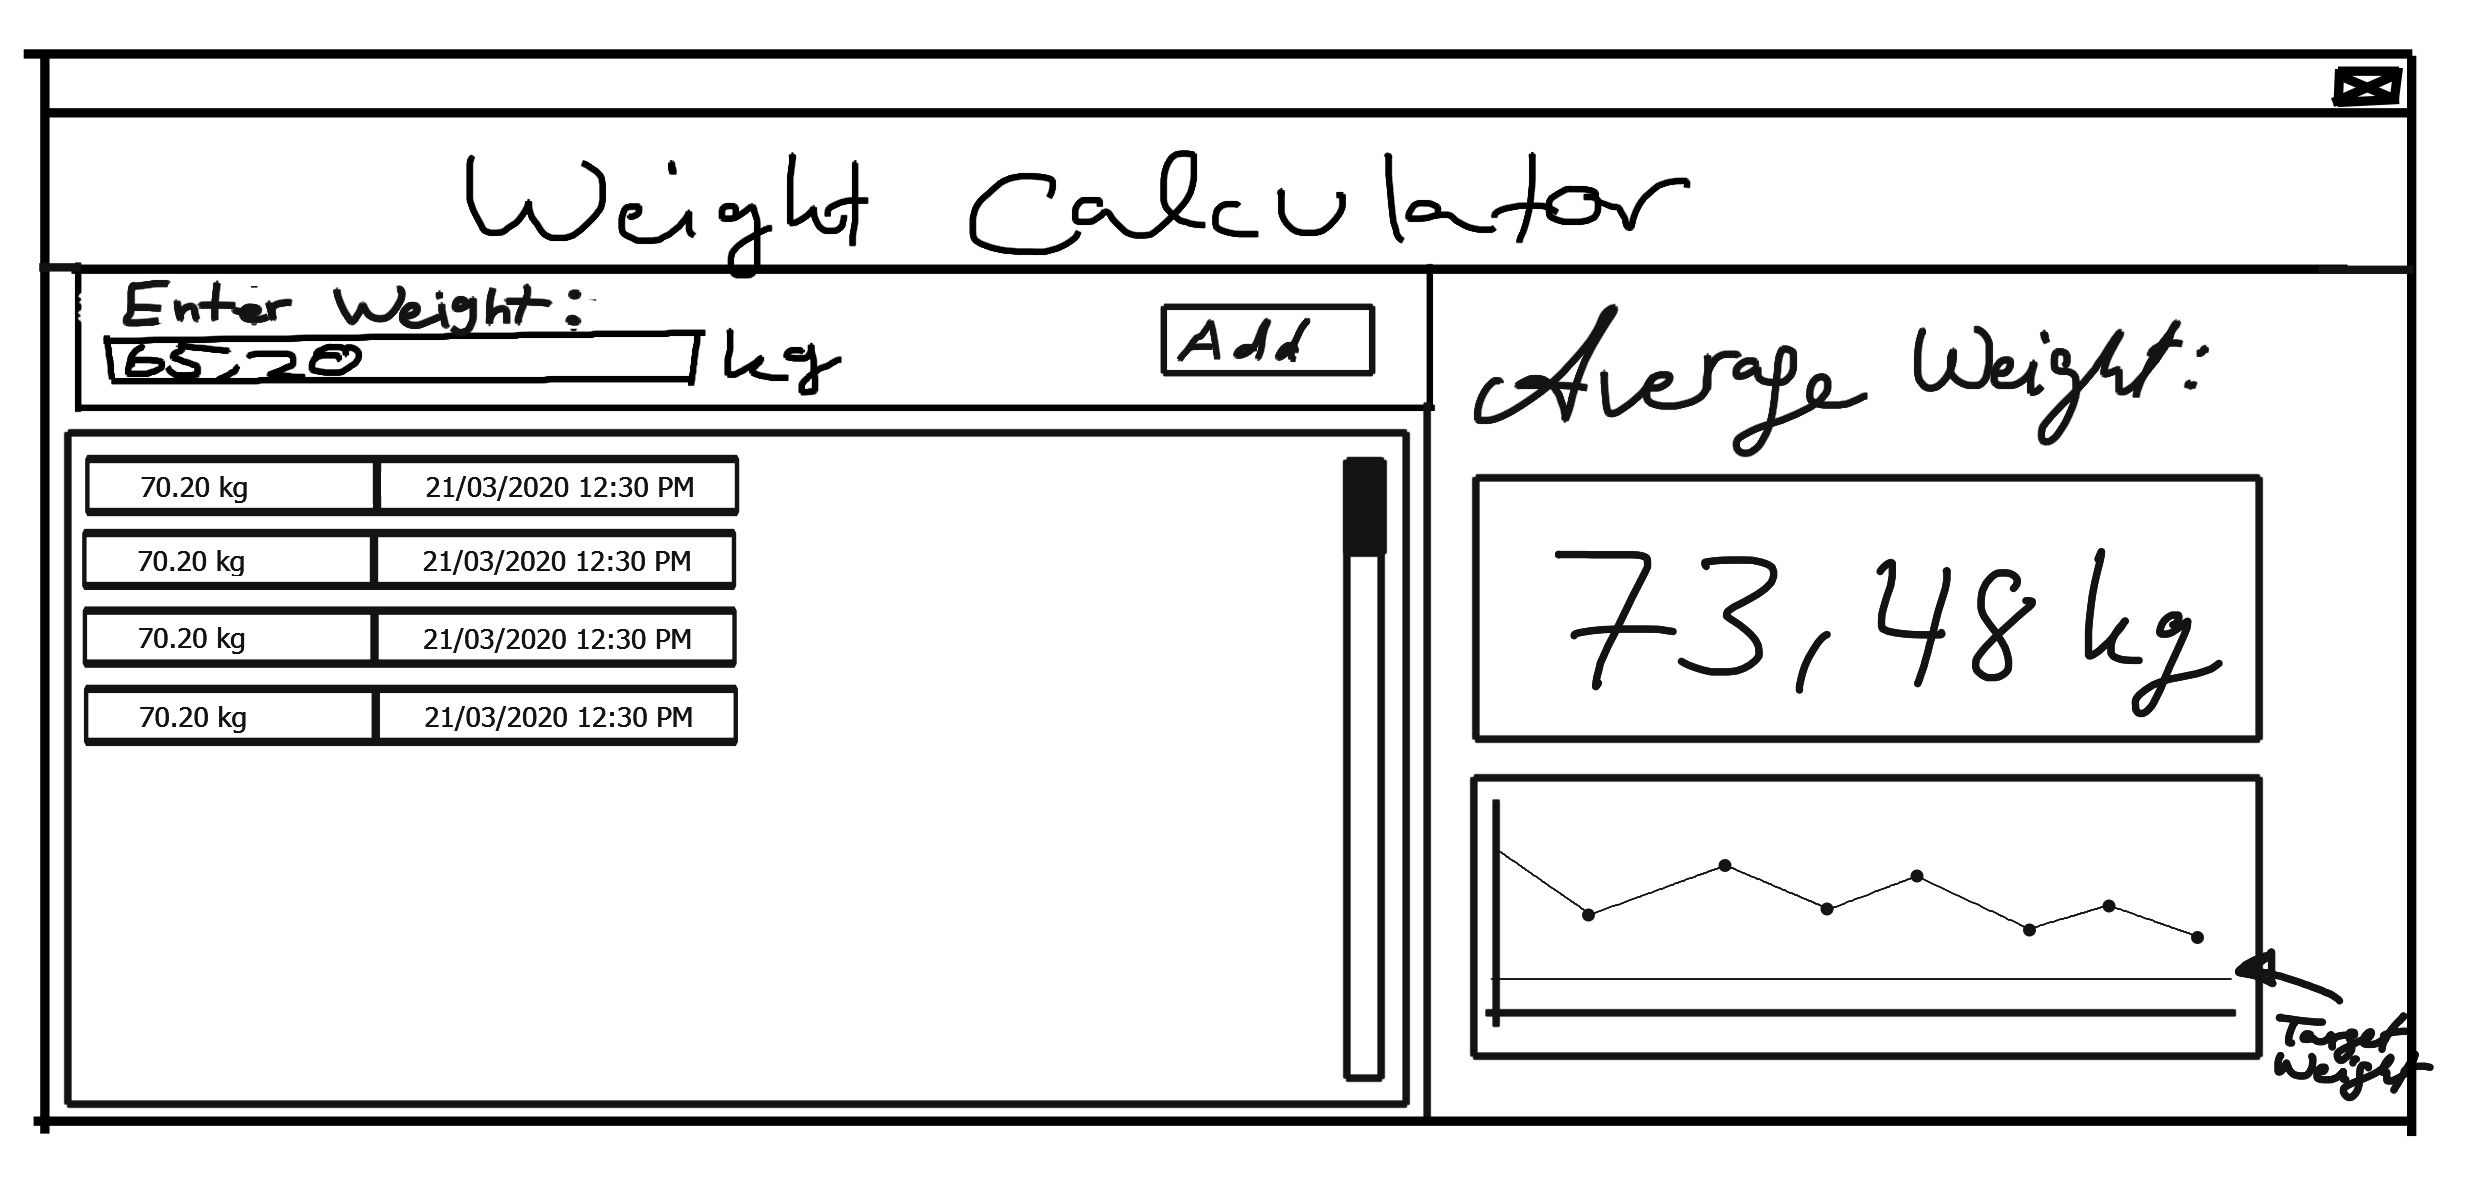 Weight Calculator
Enter Weight:
65,20 kg
Add
70.20 kg 21/03/2020 12:30 PM
70.20 kg 21/03/2020 12:30 PM
70.20 kg 21/03/2020 12:30 PM
70.20 kg 21/03/2020 12:30 PM
Average Weight:
73,48 kg
Target
Weight